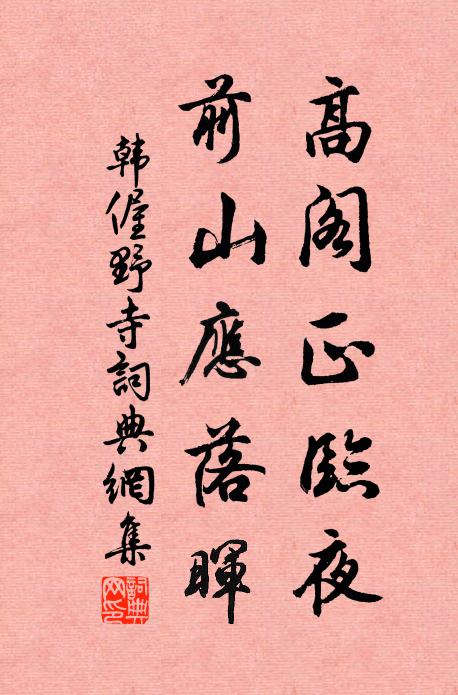 高阁正臨夜
前山應落暉
韩偓野寺詞典網集
詞典网印